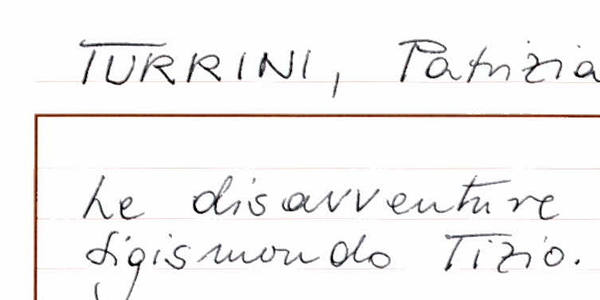 TURRINI, Patrizia
Le disavventure
Sigismondo Tizio.